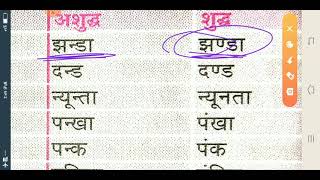 अशुद्ध शुद्ध
झन्डा झण्डा
दन्ड दण्ड
न्यून्ता न्यूनता
पन्खा पंखा
पन्क पंक